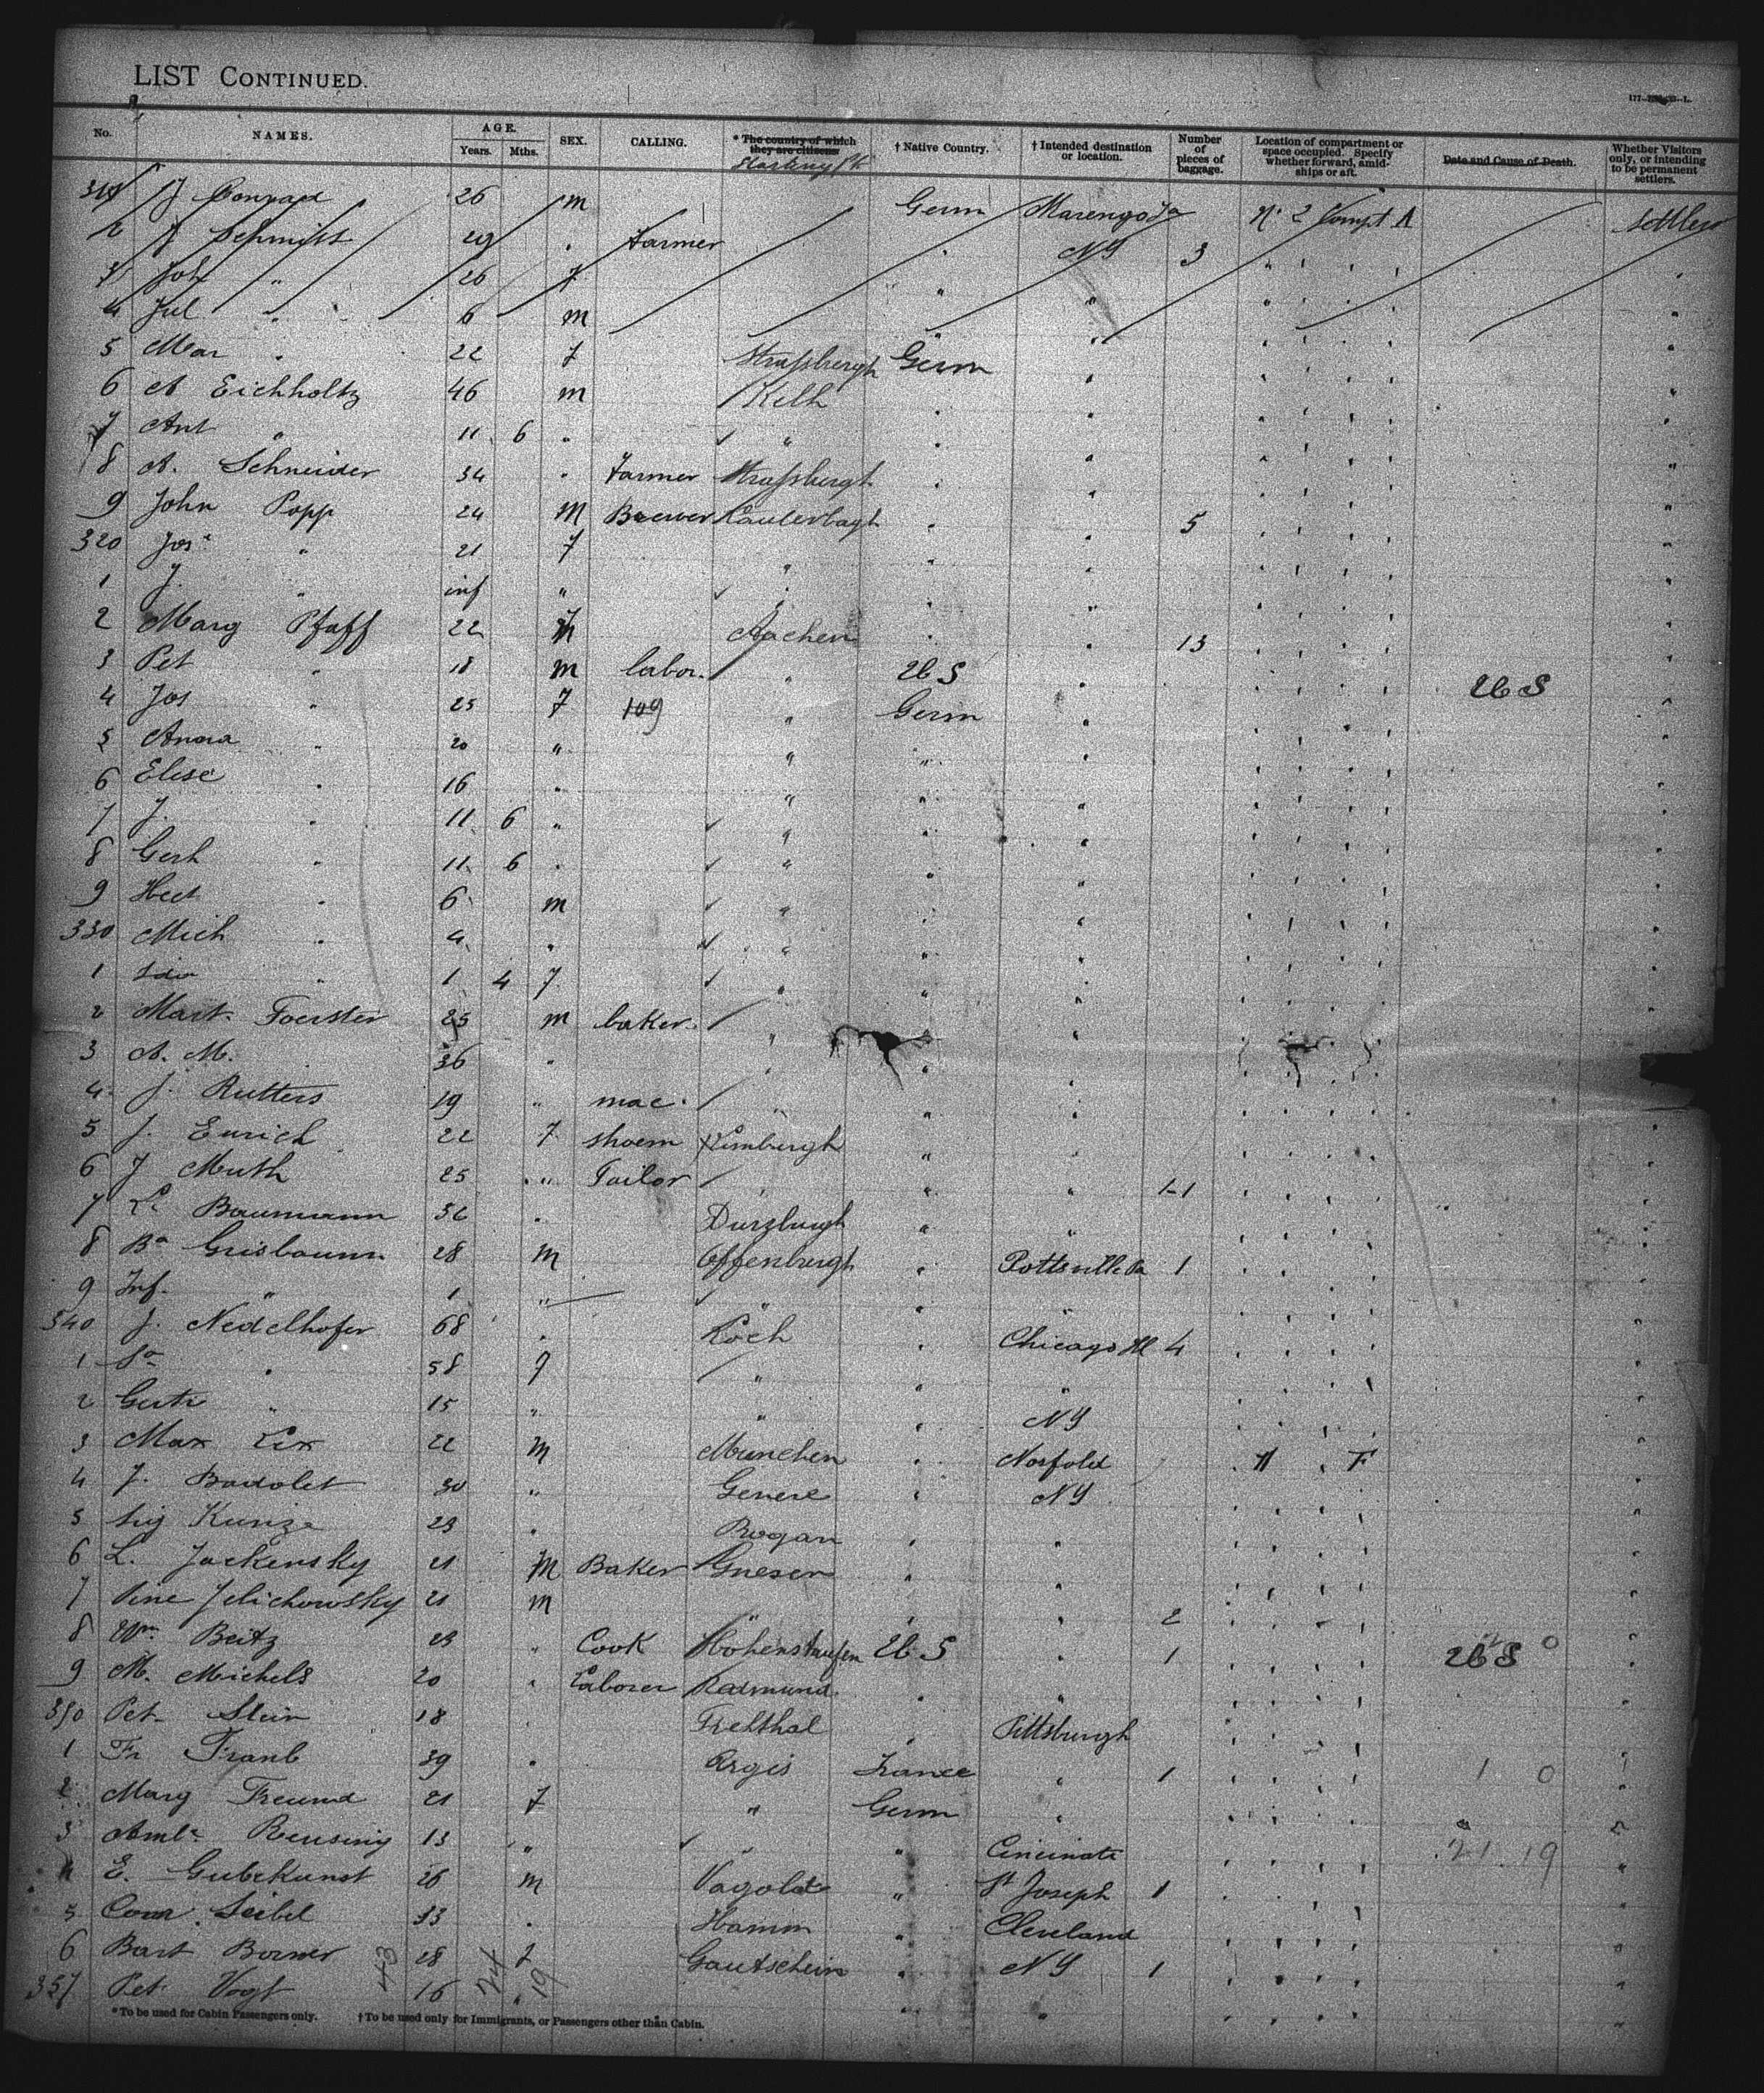 LIST CONTINUED.
No. NAMES. AGE. Years. Mths. SEX. CALLING. * The country of which they are citizens † Native Country. † Intended destination or location. Number of pieces of baggage. Location of compartment or space occupied. Specify whether forward, amid-ships or aft. Date and Cause of Death. Whether Visitors only, or intending to be permanent settlers.
J Conrad 26 m Germ Marengo Ia No 2 Compt A settlers
2 J Schmitt 29 " Farmer " NY 3
3 Joh " 26 f " "
4 Jul " 6 m " "
5 Mar " 22 f Strassbergh Germ "
6 A Eichholtz 46 m Kelh " "
7 Ant " 11 6 " " " "
8 A. Schneider 34 " Farmer Strassbergh " "
9 John Popp 24 M Brewer Lauterbagh " " 5
320 Jos " 21 f " " "
1 J. " inf " " " "
2 Marg Pfaff 22 Aachen " " 13
3 Pet " 18 m labor. " U S " U S
4 Jos " 25 f 109 " Germ "
5 Anna " 20 " " " "
6 Elise " 16 " " " "
7 J. " 11 6 " " " "
8 Gerh " 11 6 " " " "
9 " 6 m " " "
330 Mich " 4 " " " "
1 Ida " 1 4 f " " "
2 Mart. Foerster 25 m baker. " " "
3 A. M. 36 " " " "
4 J. Rutters 19 " mac. " " "
5 J. Eurich 22 f shoem Limburgh " "
6 J Muth 25 " Tailor " " " 1-1
7 L. Baumann 36 " Durzburgh " "
8 Ba Grisbaum 28 m Offenburgh " Pottsville Pa 1
9 Inf. " 1 " " " "
340 J. Nedelhofer 68 " Koch " Chicago Ill 4
1 " 58 f " " "
2 Gertr " 15 " " " NY
3 Max Lix 22 m Munchen " Norfold A " F
4 J. Badolet 30 " Genere " NY
5 Sig Kunze 23 " Rogan " "
6 L. Jackensky 21 M Baker Gnesen " "
7 Pine Jelichowsky 21 m " " " 2
8 Wm. Beitz 23 " Cook Hohenstaufen U S " 1 U S
9 M. Michels 20 " Laborer Radmund " "
350 Pet Stein 18 " Trelthal " Pittsburgh
1 Fr Traub 39 " Argis France " 1 1 0
2 Marg Freund 21 f " Germ "
3 Reusing 13 " " " Cincinati 21 19
4 E. Gubekunst 26 m Vagold " St Joseph 1
5 Conr. Seibel 33 " Hamm " Cleveland
6 Bart Borner 28 f Gautschein " NY 1
357 Pet Vogt 16 " " "
43 74 19
* To be used for Cabin Passengers only. † To be used only for Immigrants, or Passengers other than Cabin.